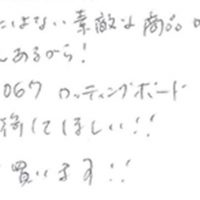 はない素敵な商品
んあるから!
067 ロッティングボード
待してほしい!!
買います!!